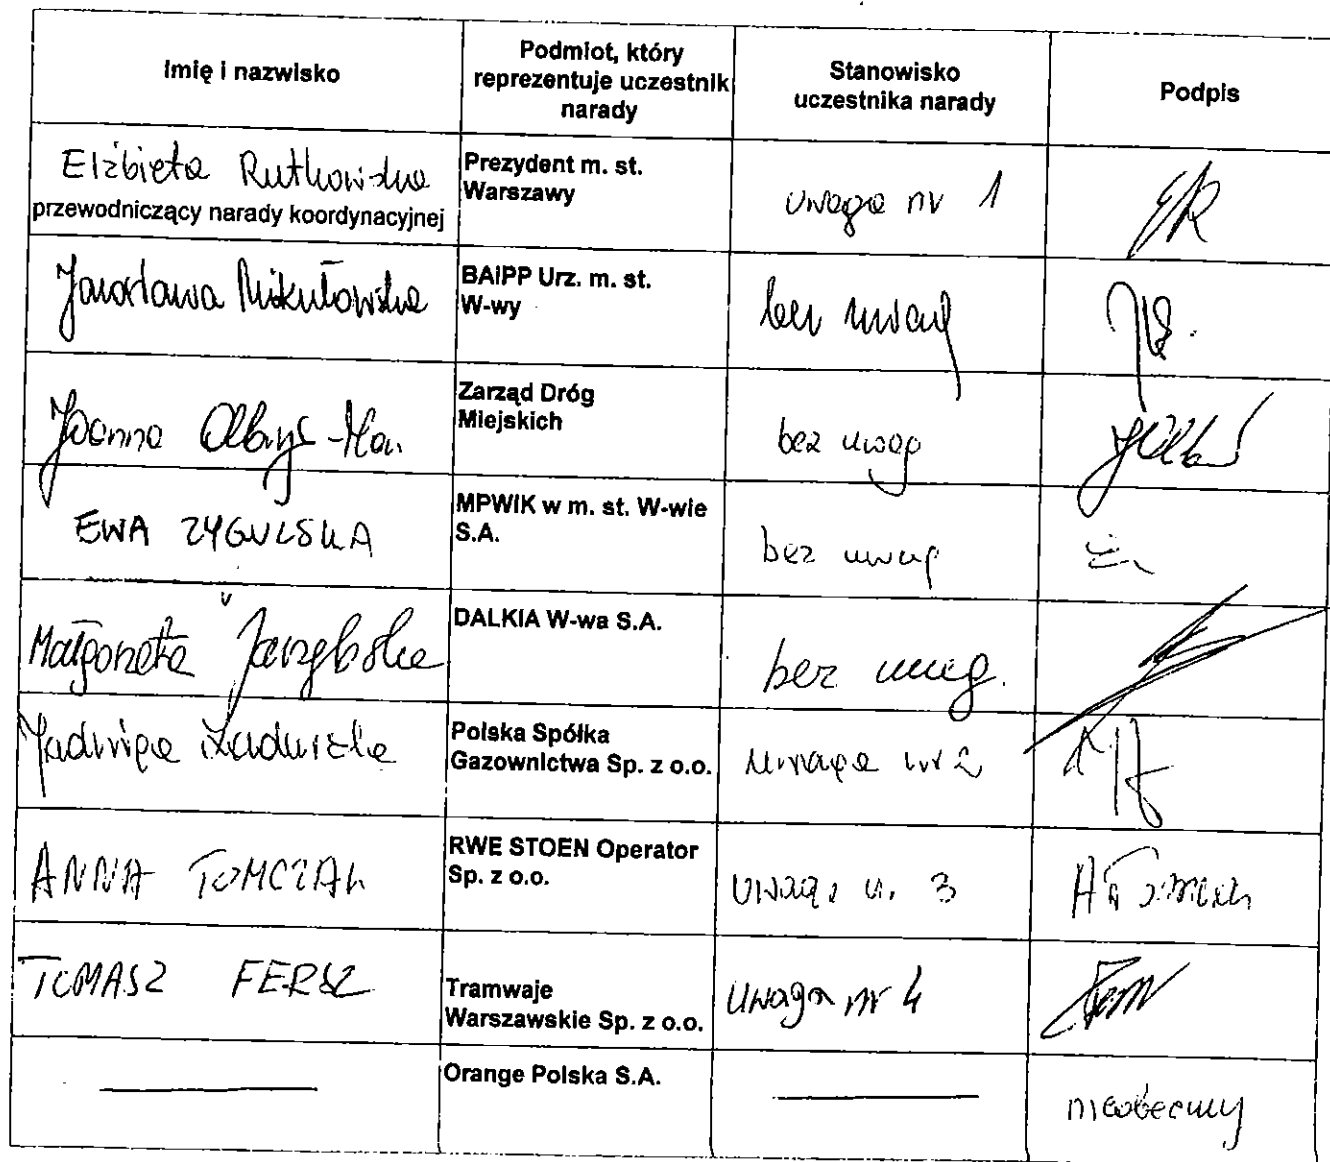 Imię i nazwisko
Podmiot, który
reprezentuje uczestnik
narady
Stanowisko
uczestnika narady
Podpis
Elżbieta Rutkowska
przewodniczący narady koordynacyjnej
Prezydent m. st.
Warszawy
uwaga nr 1
Jarosława Mikułowska
BAiPP Urz. m. st.
W-wy
bez uwag
Joanna
Zarząd Dróg
Miejskich
bez uwag
EWA ZYGULSKA
MPWIK w m. st. W-wie
S.A.
bez uwag
Małgorzata
DALKIA W-wa S.A.
bez uwag.
Jadwiga
Polska Spółka
Gazownictwa Sp. z o.o.
uwaga nr 2
ANNA TOMCZAK
RWE STOEN Operator
Sp. z o.o.
uwaga n. 3
TOMASZ
Tramwaje
Warszawskie Sp. z o.o.
uwaga nr 4
Orange Polska S.A.
nieobecny